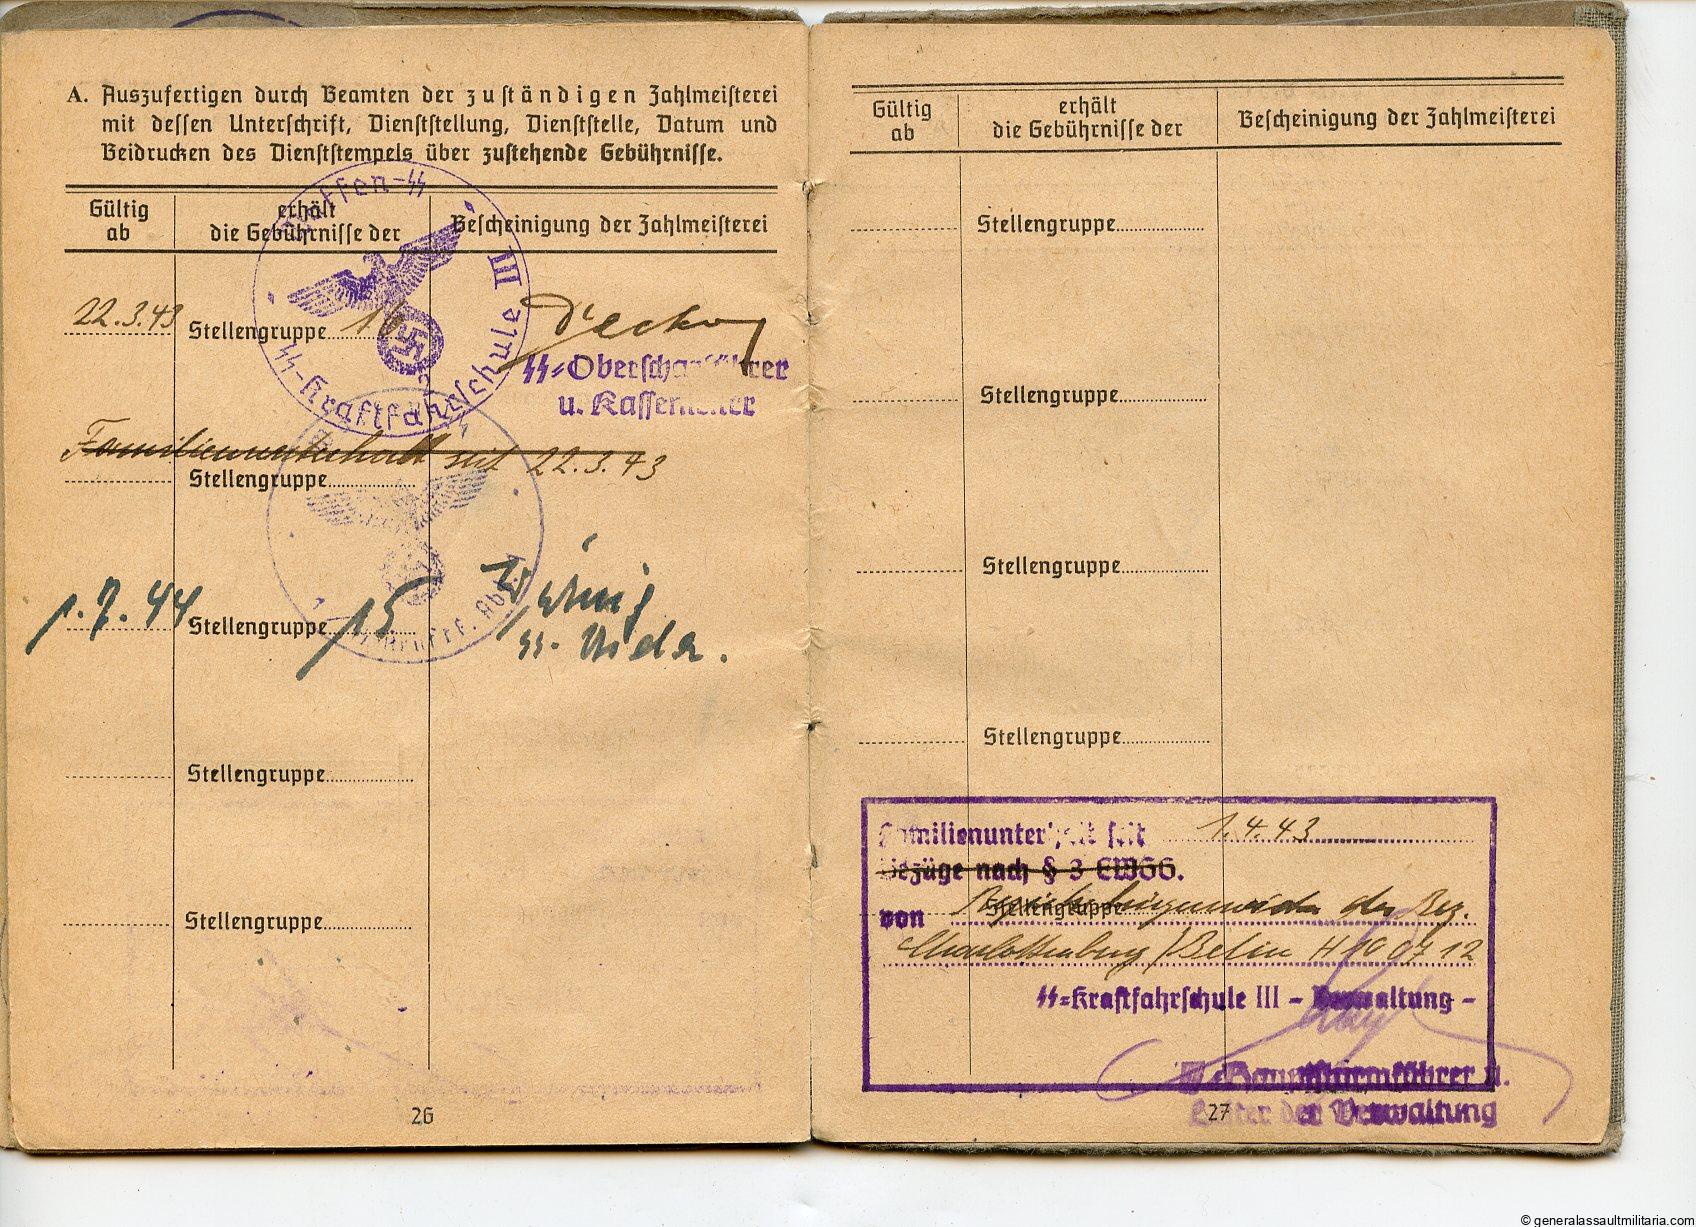 A. Auszufertigen durch Beamten der zuständigen Zahlmeisterei
mit dessen Unterschrift, Dienststellung, Dienststelle, Datum und
Beidrucken des Dienststempels über zustehende Gebührnisse.
Gültig
ab
erhält
die Gebührnisse der
Bescheinigung der Zahlmeisterei
Waffen-SS
SS-Kraftfahrschule III
22.3.43
Stellengruppe 16
SS-Oberscharführer
u. Kassenleiter
Familienunterhalt seit 22.3.43
Stellengruppe
1.7.44
Stellengruppe 15
SS-
Stellengruppe
Stellengruppe
26
Gültig
ab
erhält
die Gebührnisse der
Bescheinigung der Zahlmeisterei
Stellengruppe
Stellengruppe
Stellengruppe
Stellengruppe
Familienunterhalt seit 1.4.43
Bezüge nach § 3 EWGG.
Stellengruppe
von Bezirksbürgermeister des Bez.
Charlottenburg/Berlin
SS-Kraftfahrschule III – Verwaltung –
SS-Hauptsturmführer u.
Leiter der Verwaltung
27
© generalassaultmilitaria.com